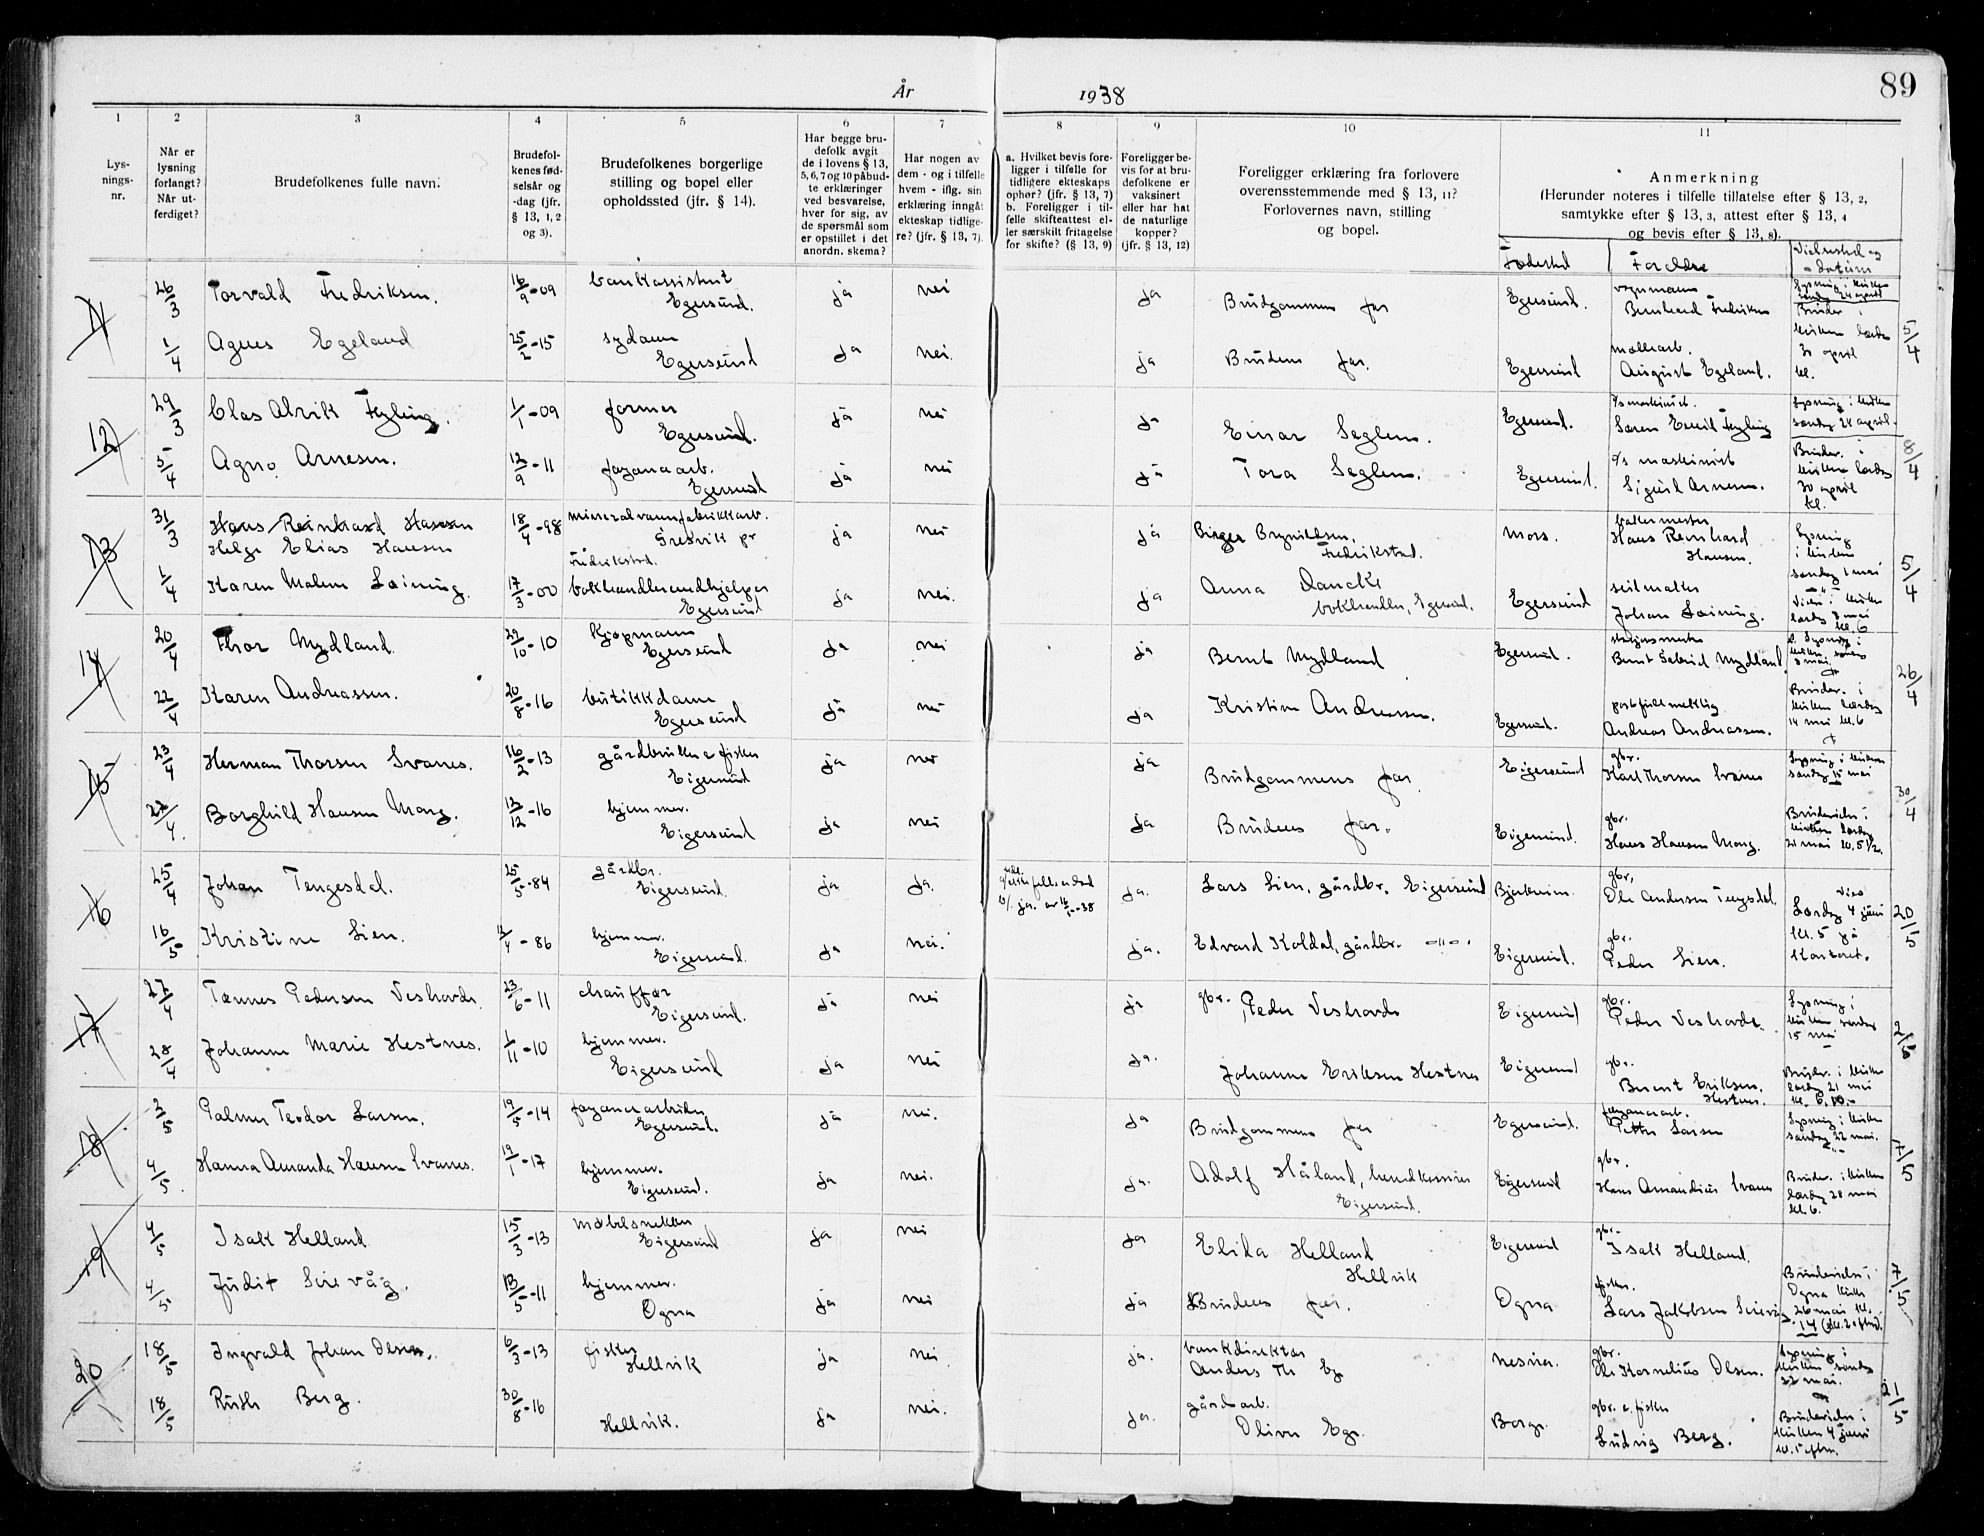 89
År 1938
1 2 3 4 5 6 7 8 9 10 11
Lysningsnr.
Når er lysning forlangt? Når utferdiget?
Brudefolkenes fulle navn.
Brudefolkenes fødselsår og -dag (jfr. § 13, 1, 2 og 3).
Brudefolkenes borgerlige stilling og bopel eller opholdssted (jfr. § 14).
Har begge brudefolk avgit de i lovens § 13, 5, 6, 7 og 10 påbudte erklæringer ved besvarelse, hver for sig, av de spørsmål som er opstillet i det anordn. skema?
Har nogen av dem - og i tilfelle hvem - iflg. sin erklæring inngåt ekteskap tidligere? (jfr. § 13, 7).
a. Hvilket bevis foreligger i tilfelle for tidligere ekteskaps ophør? (jfr. § 13, 7)
b. Foreligger i tilfelle skifteattest eller særskilt fritagelse for skifte? (§ 13, 9)
Foreligger bevis for at brudefolkene er vaksinert eller har hat de naturlige kopper? (jfr. § 13, 12)
Foreligger erklæring fra forlovere overensstemmende med § 13, 11? Forlovernes navn, stilling og bopel.
Anmerkning
(Herunder noteres i tilfelle tillatelse efter § 13, 2, samtykke efter § 13, 3, attest efter § 13, 4 og bevis efter § 13, 8).
Fødested Foreldre Vielsessted og - datum
11 26/3 Torvald Fredriksen. 16/9-09 bankassistent Egersund. ja nei ja Brudgommens far Egersund. Bernhard Fredriksen 5/4
1/4 Agnes Egeland 25/2-15 sydame Egersund ja nei. ja Brudens far. Egersund August Egeland.
30 april kl.
12 29/3 Clas Alvik Fyling. 1/1-09 former Egersund. ja nei ja Einar Seglem. Egersund. Lysning i kirken søndag 24 april. 8/4
5/4 Agno Arnesen. 12/9-11 fayancearb. Egersund ja nei ja Tora Seglem. Egersund. maskinist Sigurd Arnesen. 30 april kl.
13 31/3 Hans Reinhard Hansen
Helge Elias Hansen 18/4-98 mineralvannfabrikkarb. Gresvik pr Fredrikstad. ja nei ja Birger Brynildsen, Fredrikstad. Moss. Hans Reinhard Hansen. Lysning i kirken søndag 1 mai 5/4
1/4 Karen Malene Løining. 17/3-00 bokhandlermedhjelper Egersund ja nei. ja Anna Dancke bokhandler, Egersund. Egersund seilmaker Johan Løining. kl. 6
14 20/4 Thor Mydland. 29/10-10 Kjøpmann Egersund ja nei ja Bernt Mydland Egersund. 26/4
22/4 Karen Andreassen. 20/8-16 butikkdame Egersund ja nei ja Kristine Andreassen. Egersund. Andreas Andreassen. 14 mai kl. 6
15 23/4 Herman Thorsen Svanes. 16/2-13 gårdbruker e fisker Eigersund ja nei ja Brudgommens far Eigersund gbr. Karl Thorsen Svanes Lysning i kirken søndag 15 mai 30/4
27/4. Borghild Hansen Mong. 12/12-16 hjemmev. Eigersund ja nei ja Brudens far. Eigersund. gbr. Hans Hansen Mong. 21 mai kl. 5 1/2.
16 25/4 Johan Tengesdal. 25/5-84 gårdbr. Eigersund. ja ja. ja. Lars Lien, gårdbr. Eigersund Bjerkreim. gbr. Ole Andersen Tengsdal. Lørdag 4 juni kl. 5 på Kontoret. 20/5
16/5 Kristine Lien. 12/4-86 hjemmev. Eigersund. ja nei. ja. Edvard Koldal, gårdbr. -"- Eigersund. gbr. Peder Lien.
17 27/4 Tønnes Pedersen Veshovde. 23/6-11 chauffør Eigersund. ja nei ja gbr. Peder Veshovde Eigersund gbr. Peder Veshovde. Lysning i kirken søndag 15 mai 2/5
28/4 Johanne Marie Hestnes. 1/11-10 hjemmev. Eigersund ja nei ja. Johanne Eriksen Hestnes Eigersund gbr. Berent Eriksen. Hestnes. 21 mai
18 3/5 Palmer Teodor Larsen. 19/5-14 fayancearbeider Egersund. ja nei. ja Brudgommens far Egersund. fayancearb. Petter Larsen Lysning i kirken søndag 22 mai. 7/5
4/5. Hanna Amanda Hansen Svanes. 19/1-17 hjemmev. Eigersund. ja nei. ja. Adolf Håland, herredkasserer Eigersund. Eigersund gbr. Hans Amandius Svanes Brudev. i kirken lørdag 28 mai kl. 6.
19 4/5 Isak Helland 15/3-13 møbelsnekker Eigersund ja nei ja Elida Helland Hellvik Eigersund gbr. Isak Helland. 7/5
4/5 Judit Sirevåg. 13/5-11 hjemmev. Ogna ja nei ja Brudens far. Ogna fisker. Lars Jakobsen Sirevåg Brudevielse i Ogna kirke 26 mai kl. 14 (kl. 2 eftm).
20 18/5 Ingvald Johan Olsen. 6/3-13 fisker Hellvik ja nei ja. bankdirektør Anders Th Ege gbr. Ole Kornelius Olsen. Lysning i kirken søndag 22 mai. 21/5
18/5 Ruth Berg. 30/8-16 Hellvik. ja nei. ja. gårdsarb. Oliver Ege. Borge. gbr. e. fisker Ludvig Berg. Brudevielse i kirken 4 juni kl. 5 eftm.